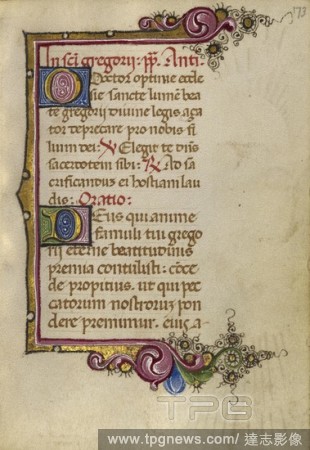 73
In sci gregorij: pp. Anti:
O Doctor optime eccle
sie sancte lumē bea
te gregori diuine legis ama
tor deprecare pro nobis fi
lium dei: V Elegit te dn̄s
sacerdotem sibi: R Ad sa
crificandus ei hostiam lau
dis: Oratio:
DEus qui anime
famuli tui grego
rij eterne beatitudinis
premia contulisti: cōce
de propitius: ut qui pec
catorum nostrorum pon
dere premimur. eius a-
TPG
www.tpgnews.com/ 達志影像